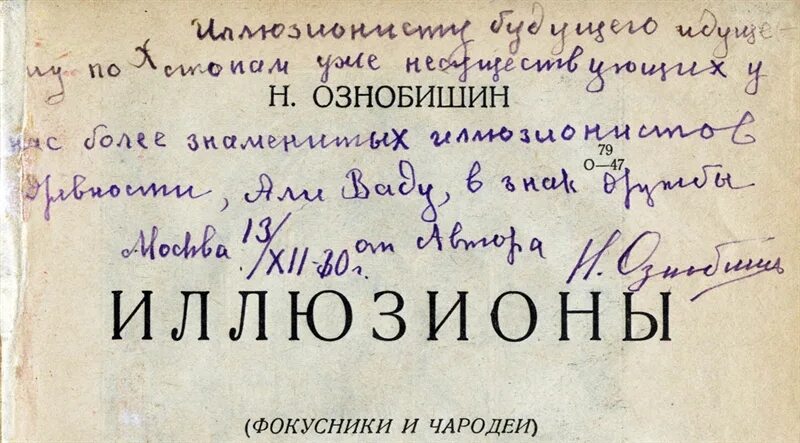 Иллюзионисту будущего идуще-
му по стопам уже несуществующих у
Н. ОЗНОБИШИН
нас более знаменитых иллюзионистов
79
О—47
древности, Али Ваду, в знак дружбы
Москва 13/XII-30г. от Автора Н. Ознобишин
ИЛЛЮЗИОНЫ
(ФОКУСНИКИ И ЧАРОДЕИ)